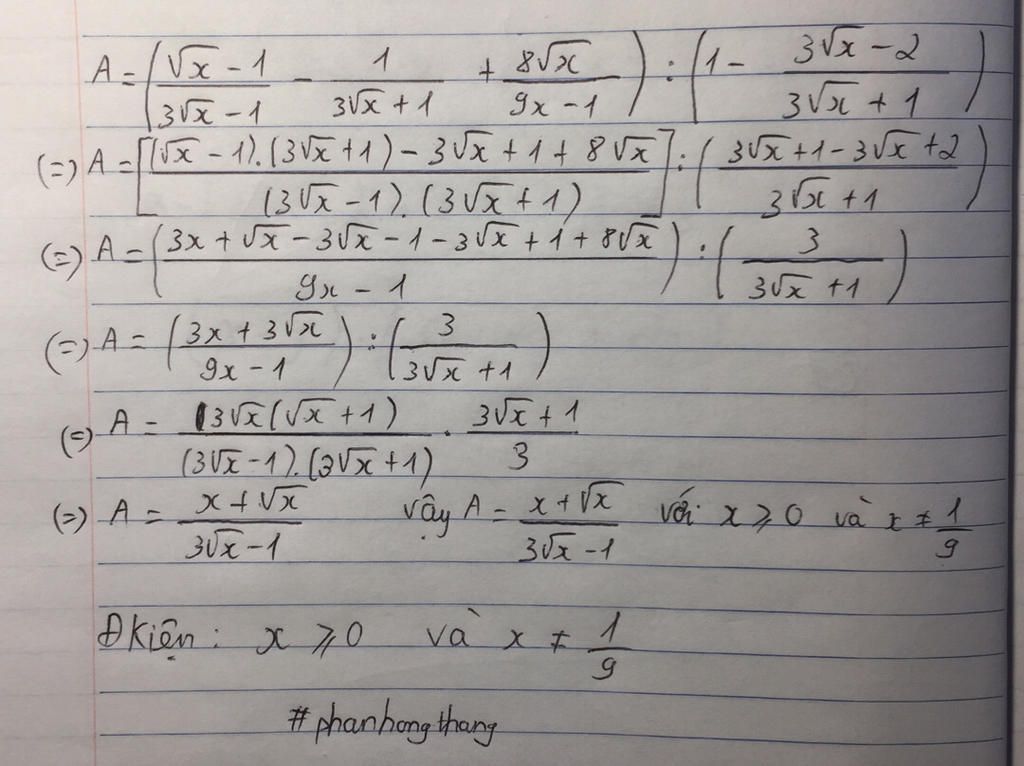 A = ( (√x - 1)/(3√x - 1) - 1/(3√x + 1) + 8√x/(9x - 1) ) : ( 1 - (3√x - 2)/(3√x + 1) )
(=) A = [ ((√x - 1).(3√x + 1) - 3√x + 1 + 8√x)/((3√x - 1).(3√x + 1)) ] : ( (3√x + 1 - 3√x + 2)/(3√x + 1) )
(=) A = ( (3x + √x - 3√x - 1 - 3√x + 1 + 8√x)/(9x - 1) ) : ( 3/(3√x + 1) )
(=) A = ( (3x + 3√x)/(9x - 1) ) : ( 3/(3√x + 1) )
(=) A = (3√x(√x + 1))/((3√x - 1).(3√x + 1)) . (3√x + 1)/3
(=) A = (x + √x)/(3√x - 1) vậy A = (x + √x)/(3√x - 1) với x ⩾ 0 và x ≠ 1/9
Đkiện: x ⩾ 0 và x ≠ 1/9
#phanhongthang